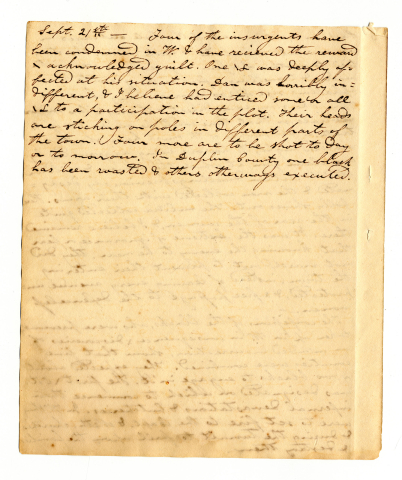 Sept. 21st — Four of the insurgents have
been condemned in W. & have received the reward
& acknowledged guilt. One was deeply af-
fected at his situation. Dan was horribly in=
different, & I believe had enticed some or all
to a participation in the plot. Their heads
are sticking on poles in different parts of
the town. Four more are to be shot to Day
or to morrow. In Duplin County one black
has been roasted & others otherways executed.